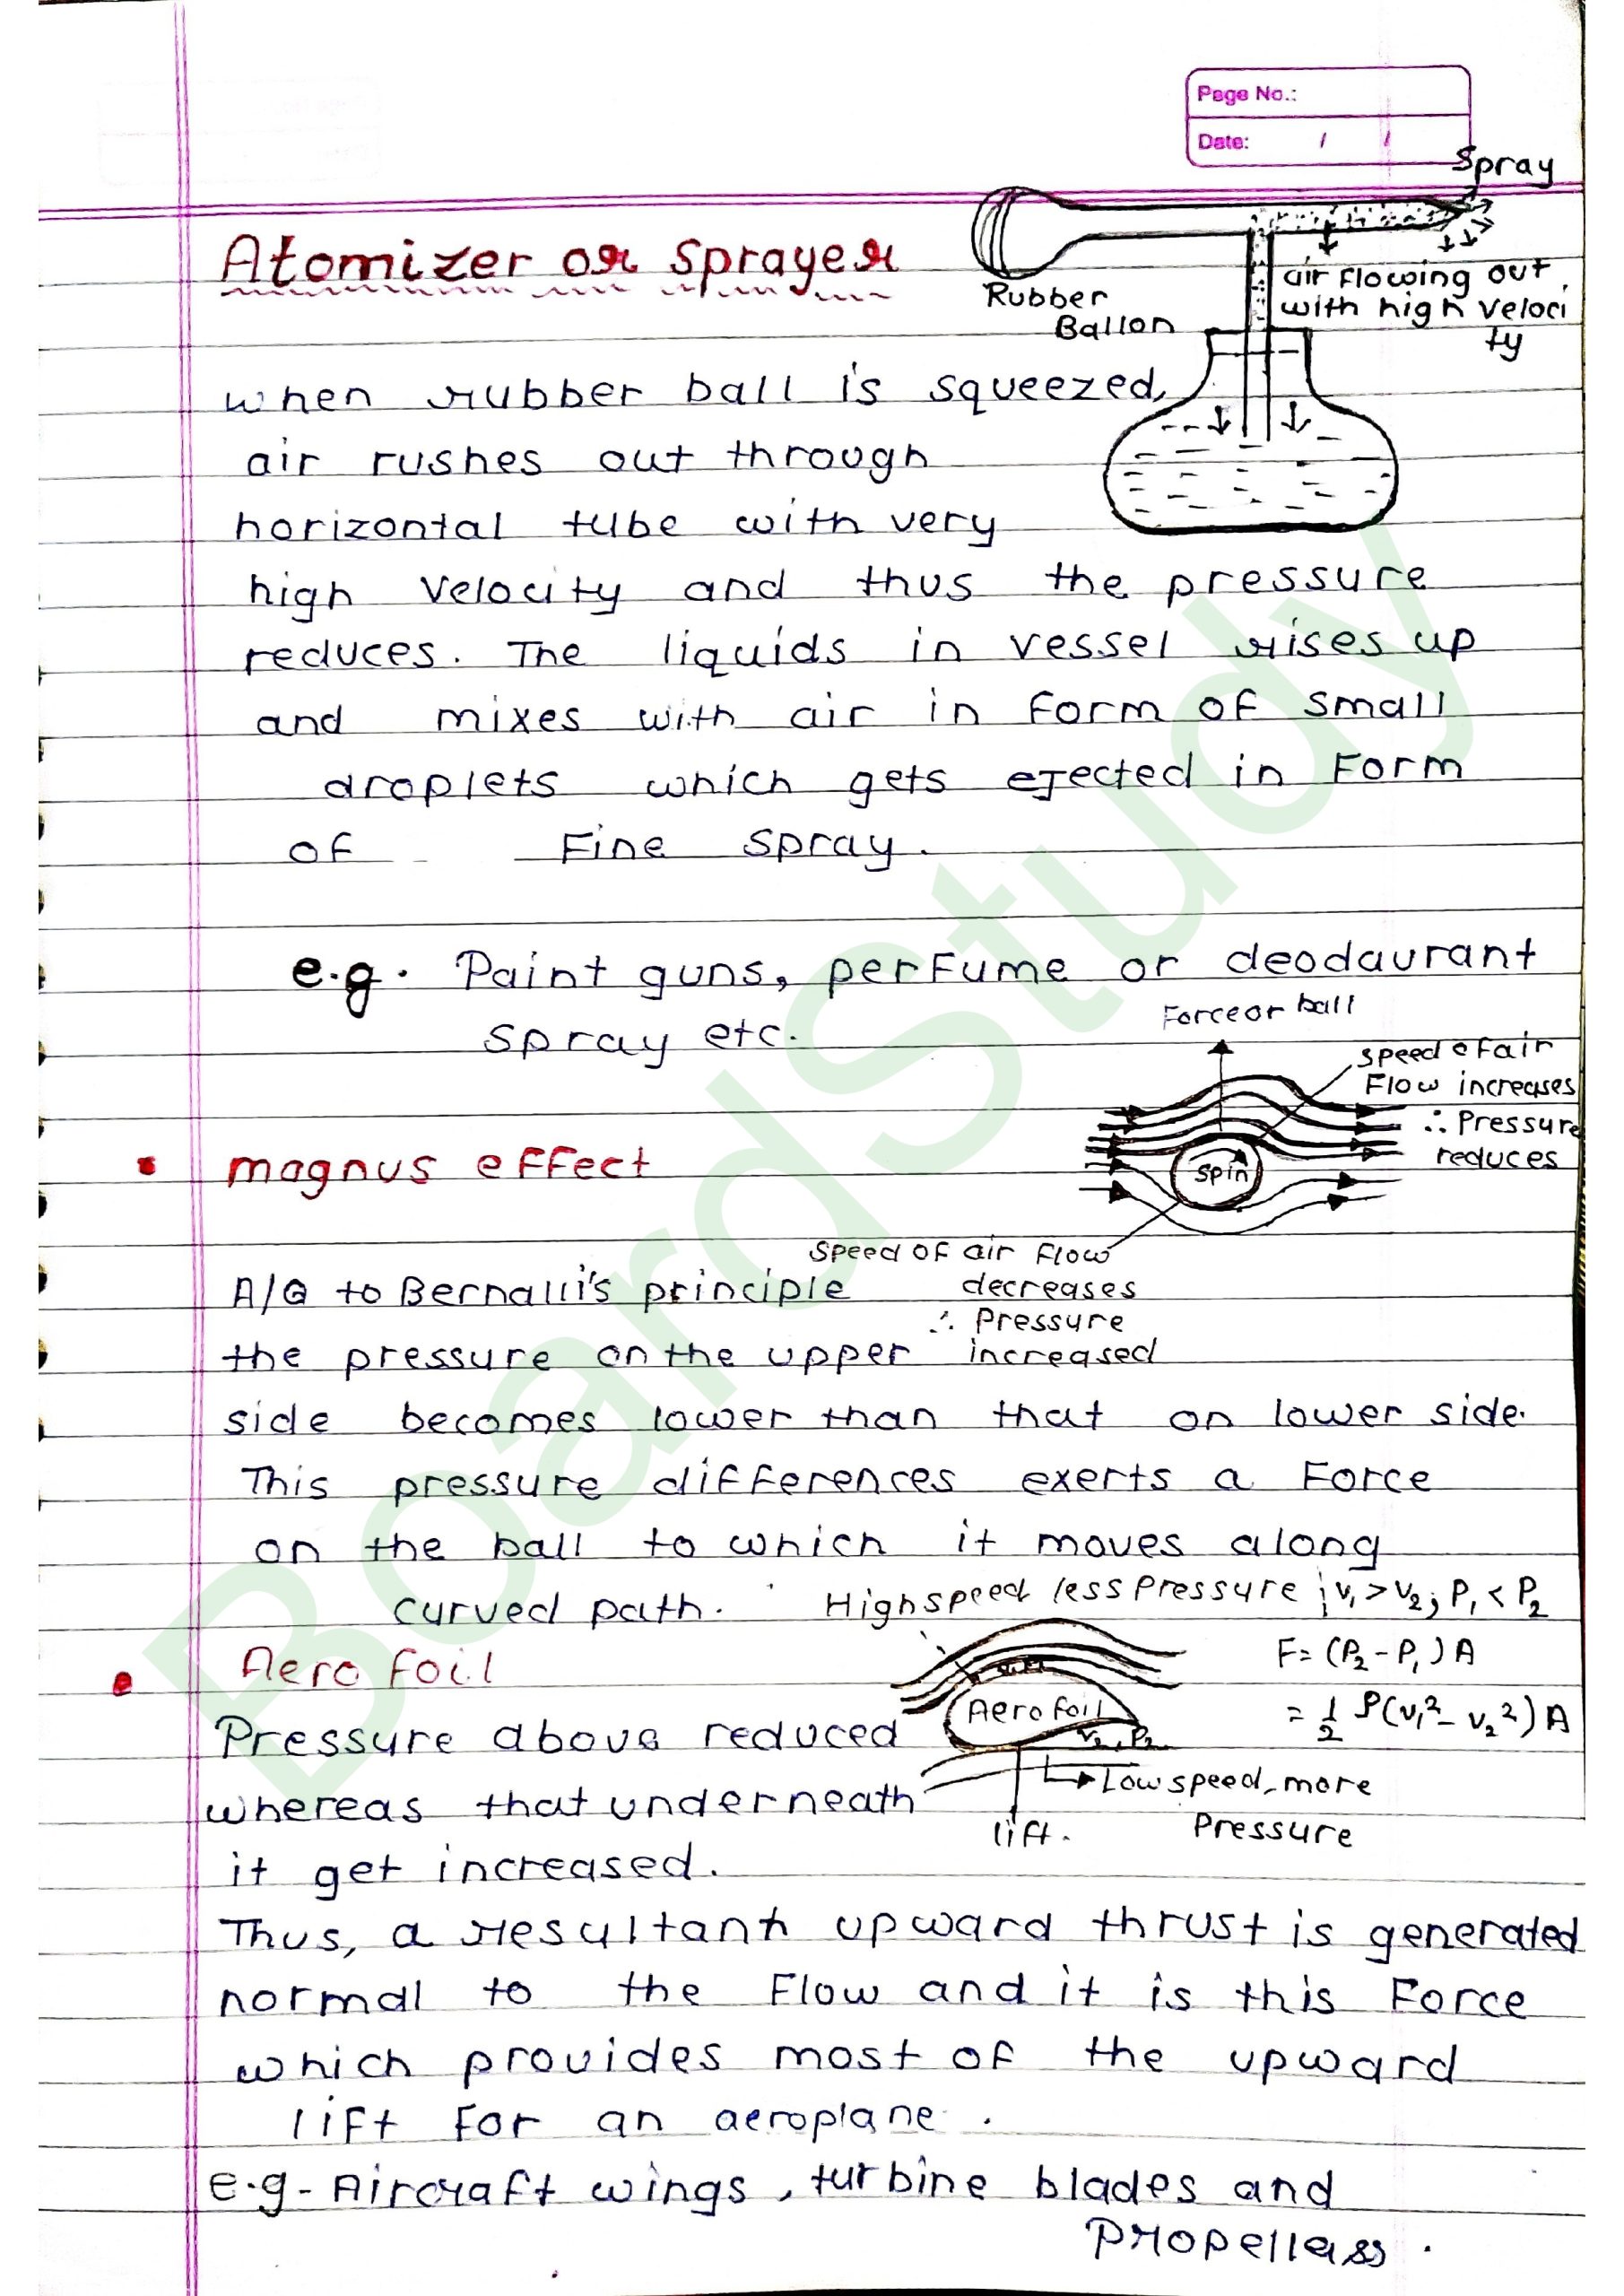 Page No.:
Date: / /
Spray
Atomizer or sprayer
Rubber
Ballon
air flowing out
with high veloci
ty
when rubber ball is squeezed,
air rushes out through
horizontal tube with very
high velocity and thus the pressure
reduces. The liquids in vessel rises up
and mixes with air in form of small
droplets which gets ejected in form
of fine spray.
e.g. Paint guns, perfume or deodaurant
spray etc.
Force or ball
speed of air
Flow increases
∴ Pressure
reduces
spin
magnus effect
speed of air flow
decreases
∴ Pressure
increased
A/Q to Bernalli's principle
the pressure on the upper
side becomes lower than that on lower side.
This pressure differences exerts a force
on the ball to which it moves along
curved path.
High speed less pressure ; v₁ > v₂ ; P₁ < P₂
F = (P₂ - P₁) A
= 1/2 ρ(v₁² - v₂²) A
Aero foil
Aero foil
v₂, P₂
Low speed, more
Pressure
lift.
Pressure above reduced
whereas that underneath
it get increased.
Thus, a resultant upward thrust is generated
normal to the flow and it is this force
which provides most of the upward
lift for an aeroplane.
E.g - Aircraft wings, turbine blades and
propellers.
BoardStudy